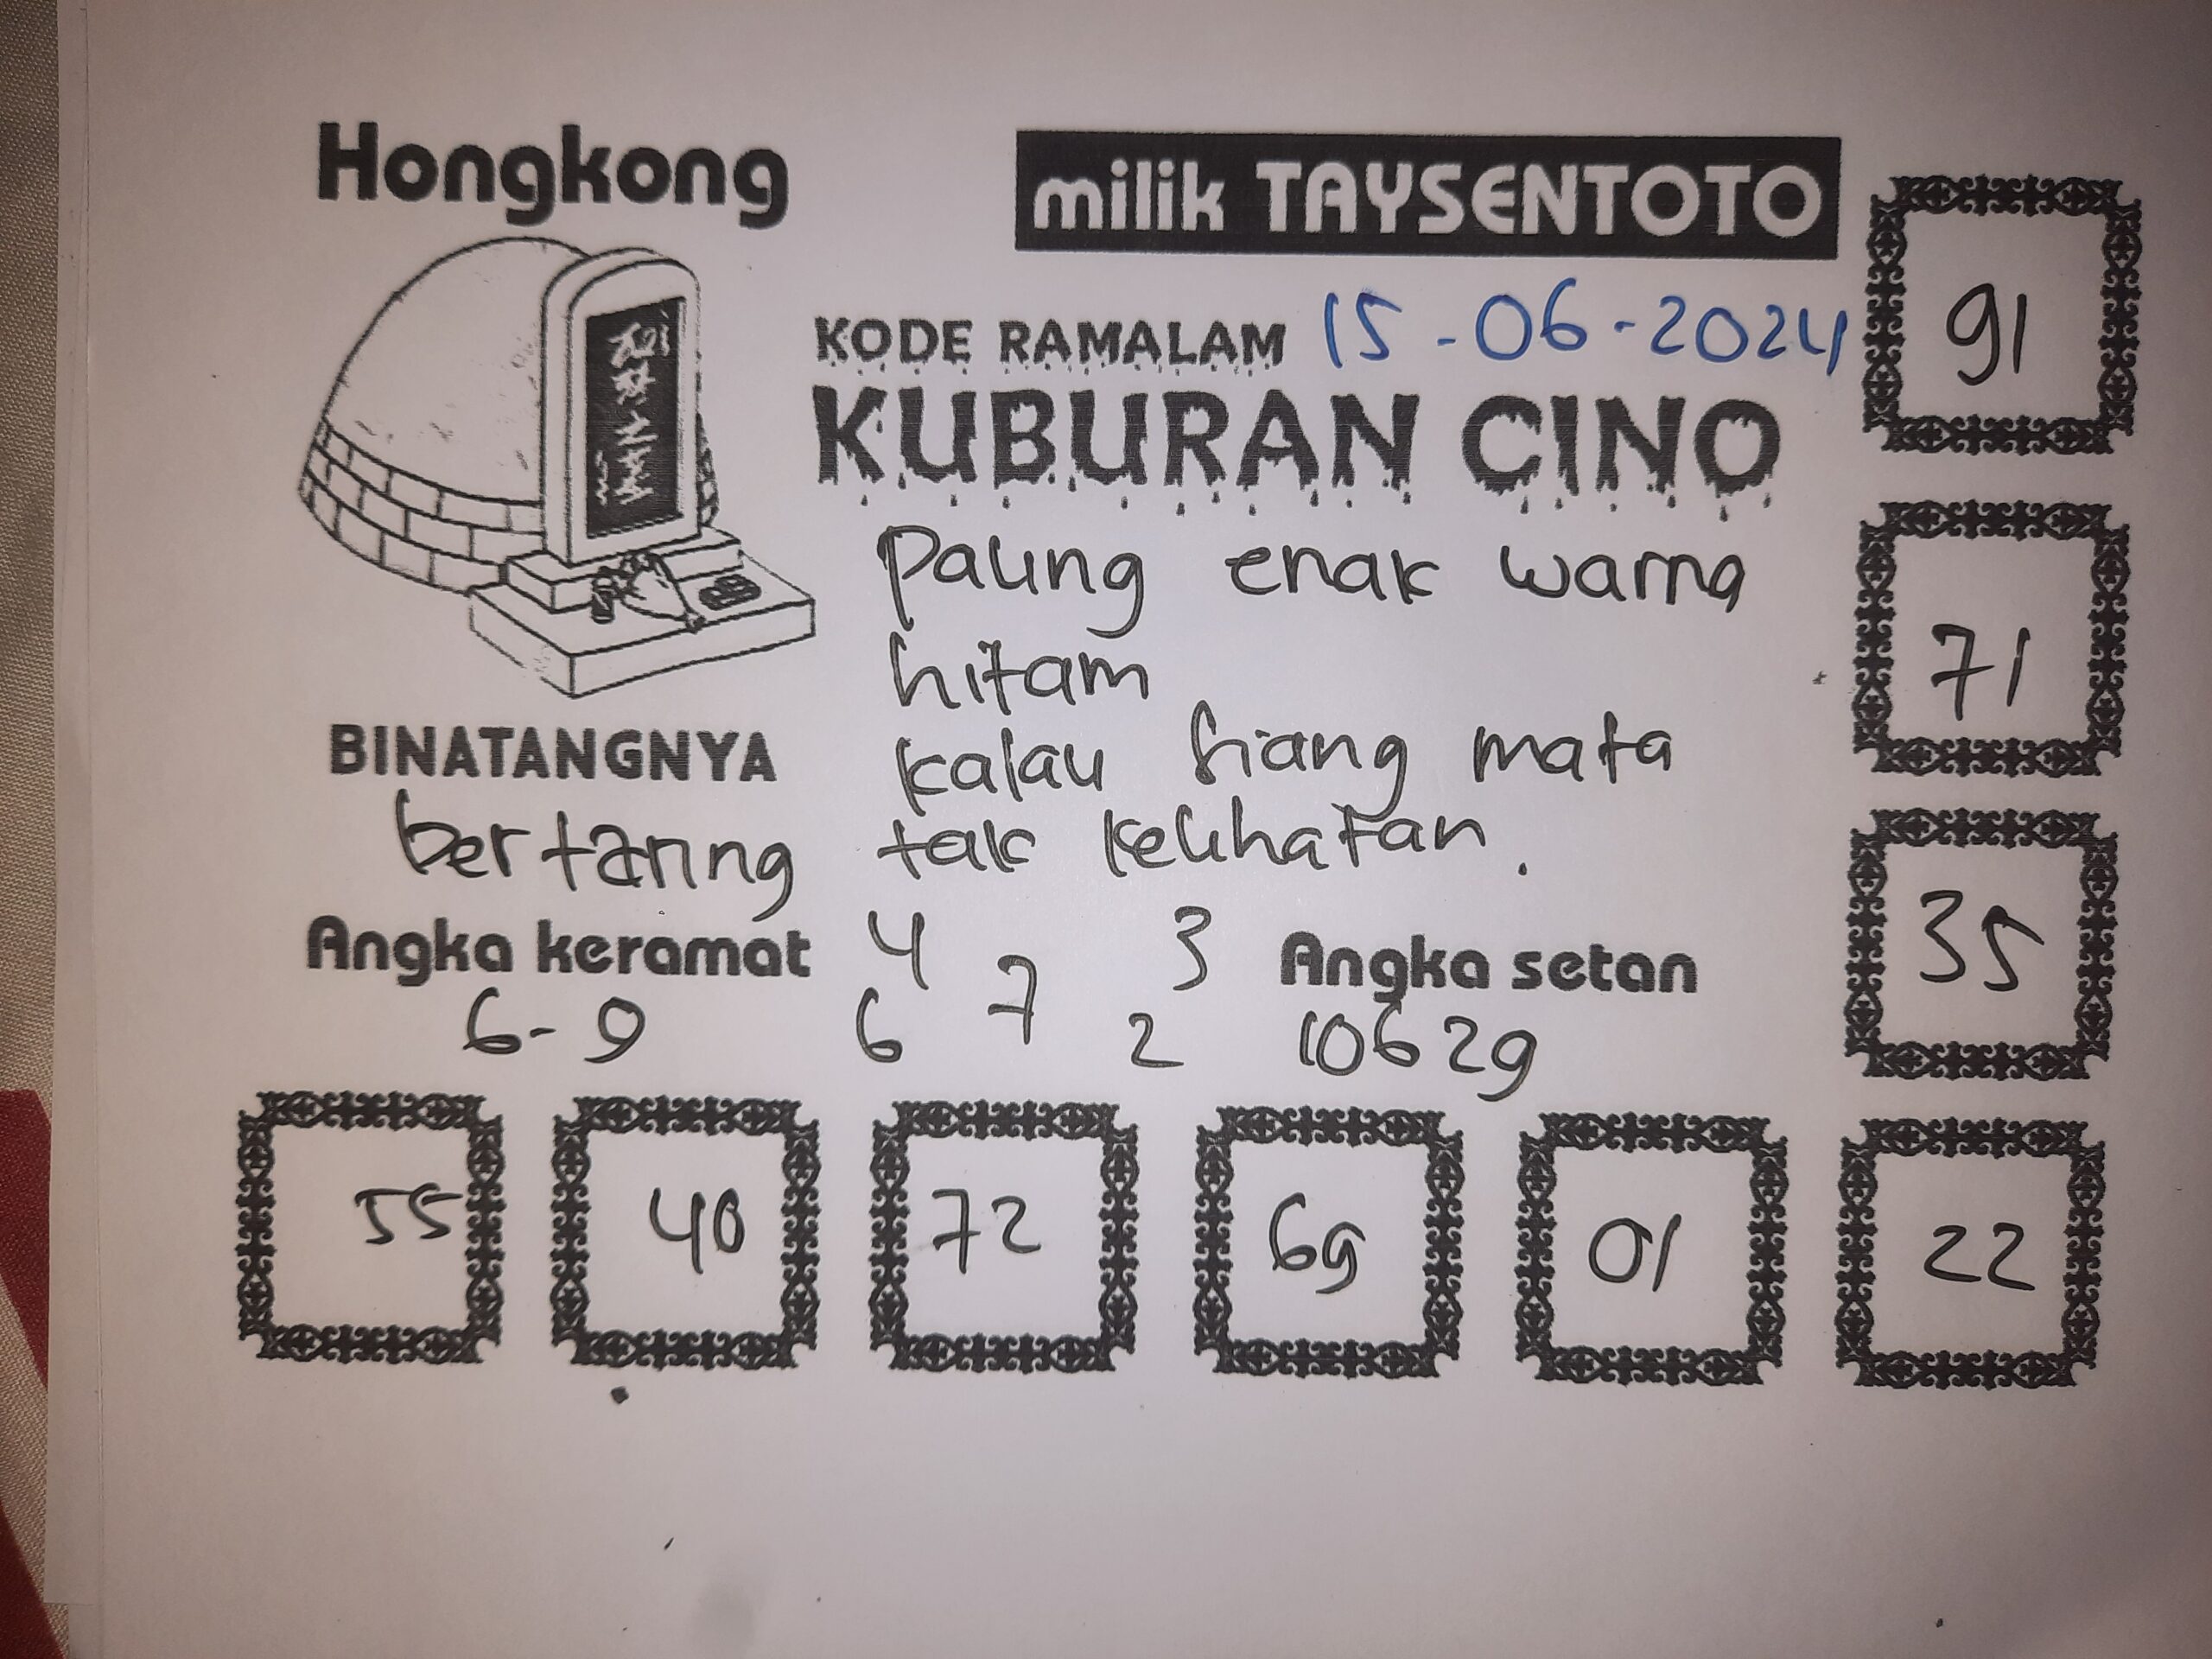 Hongkong
milik TAYSENTOTO
KODE RAMALAM 15-06-2024
KUBURAN CINO
Paling enak warna
hitam
kalau siang mata
tak kelihatan.
BINATANGNYA
bertaring
Angka keramat
6-9
4 3
7
6 2
Angka setan
10629
91
71
35
55 40 72 69 01 22